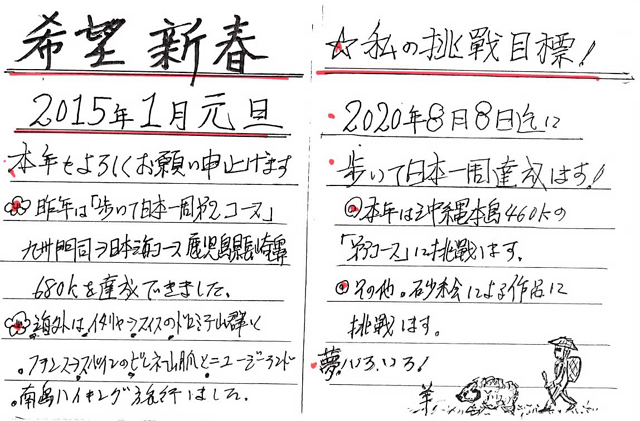 希望 新春
2015年1月元旦
・本年もよろしくお願い申上げます
昨年は「歩いて日本一周第2コース」
九州門司→日本海コース鹿児島県長崎鼻
680kを達成できました。
海外は、イタリヤ→スイスのドロミテ山群と
・フランス→スペインのピレネー山脈とニュージーランド
・南島ハイキング旅行しました。
☆私の挑戦目標!
・2020年8月8日迄に
・歩いて日本一周達成はす!
本年は沖縄本島460kの
「第3コース」に挑戦はす。
その他。砂絵による作品に
挑戦はす。
・夢いろいろ!
羊